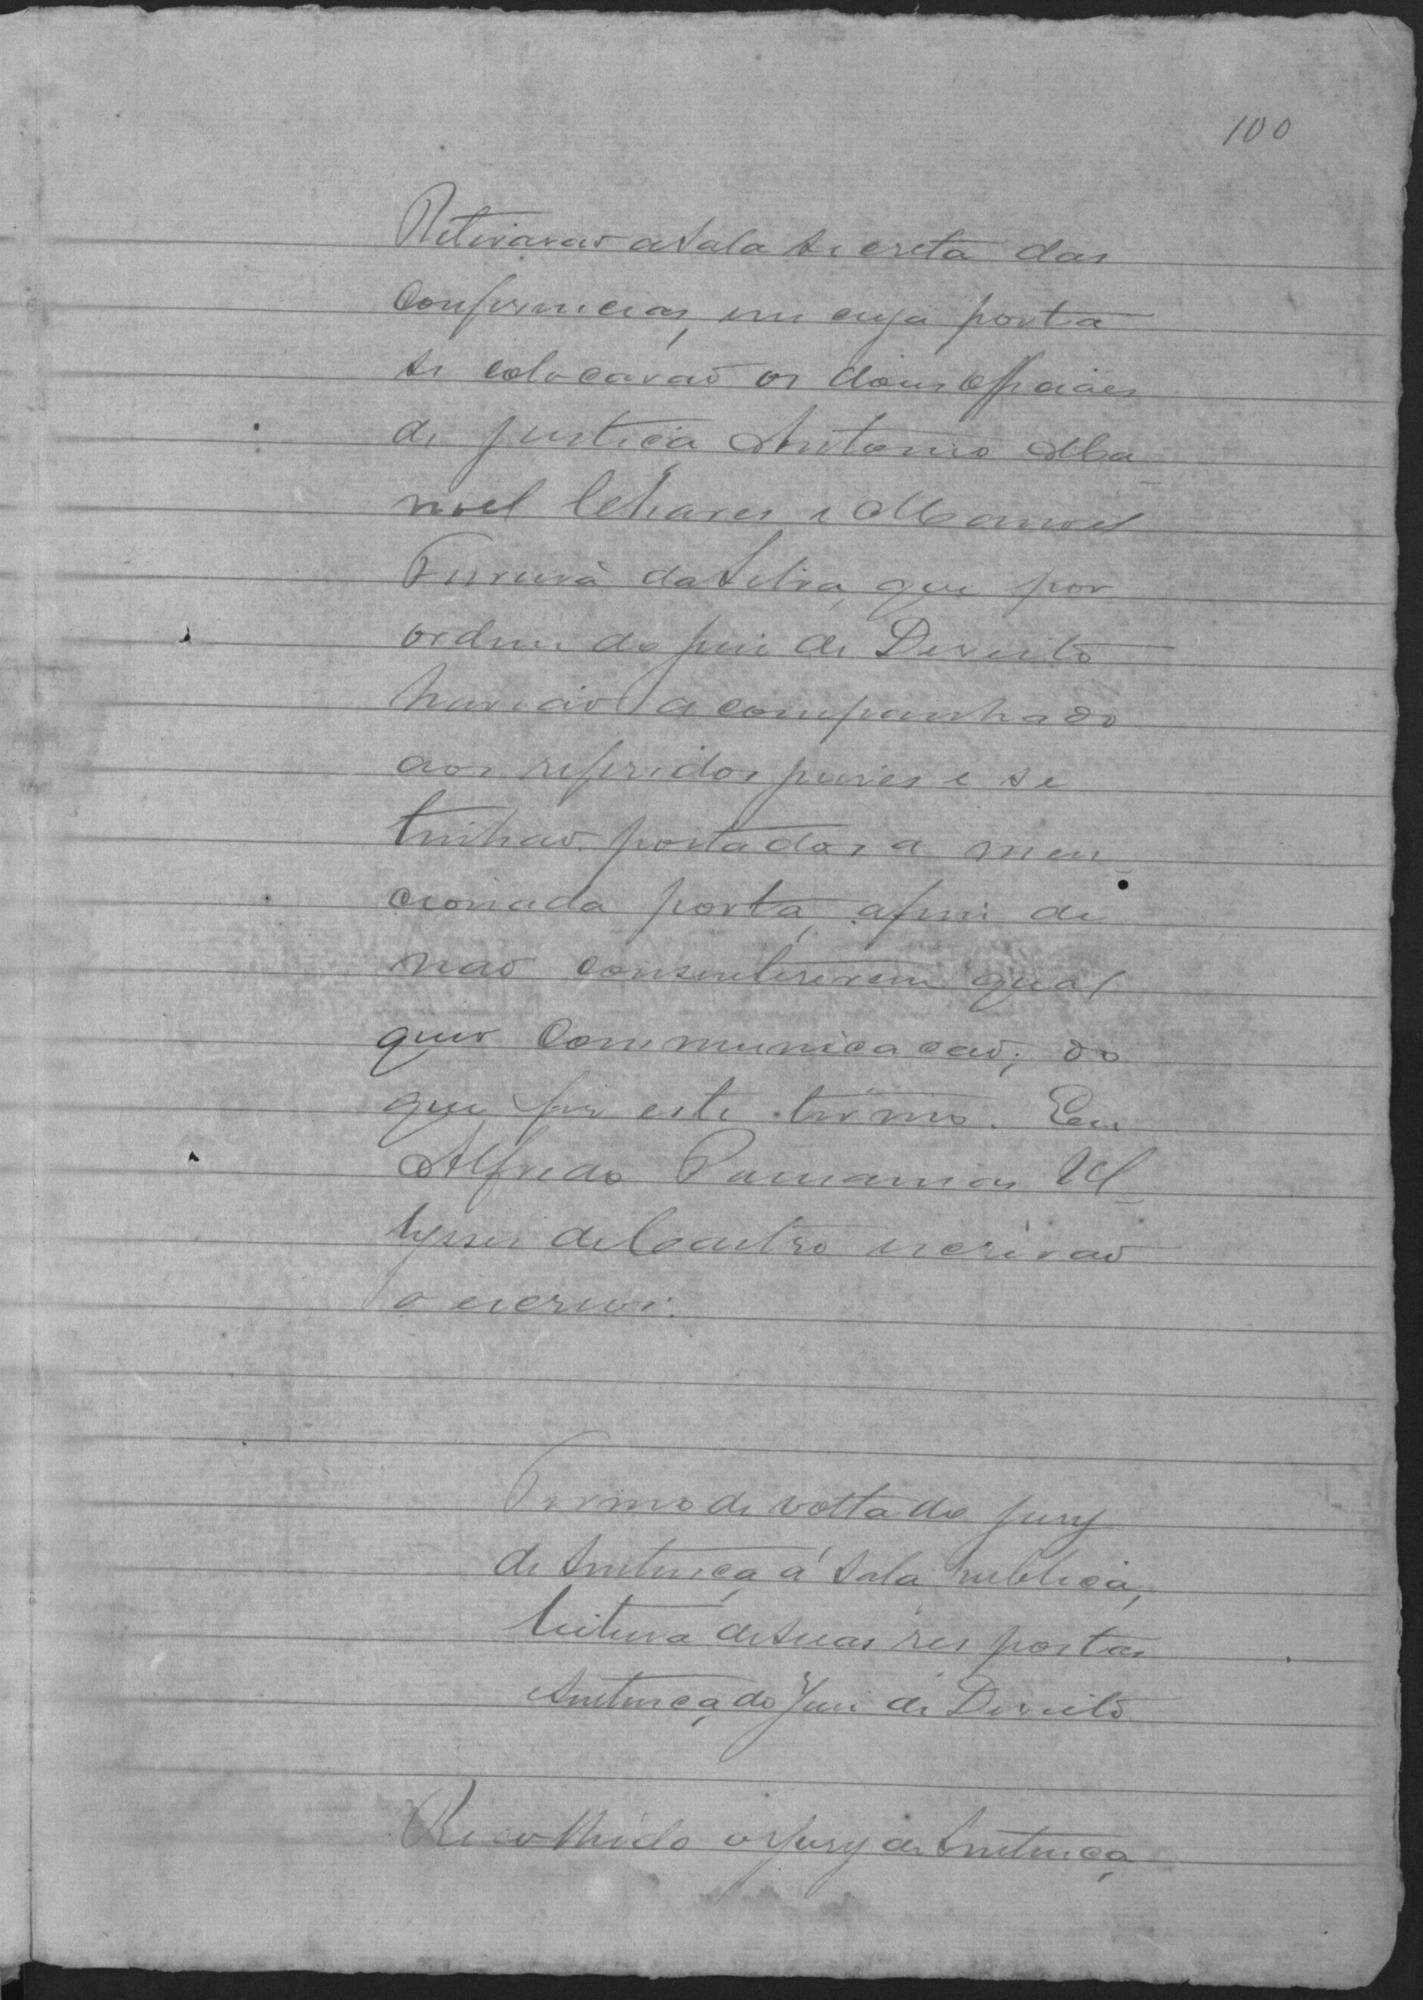 100
Retirarao a sala secreta das
conferencias, em cuja porta
se colocarão os dous officiaes
de justiça Antonio Ma
noel Chaves e Manoel
Ferreira da Silva, que por
ordem do juiz de Direito
havião acompanhado
aos referidos juizes e se
tinhão postados a men
cionada porta, afim de
não consentirem qual
quer communicação; do
que fiz este termo. Eu
Alfredo Ul
lysses de Castro escrivão
o escrevi.
Termo de volta do jury
de sentença á sala publica,
leitura de suas respostas
sentença do Juiz de Direito
Recolhido o jury de sentença